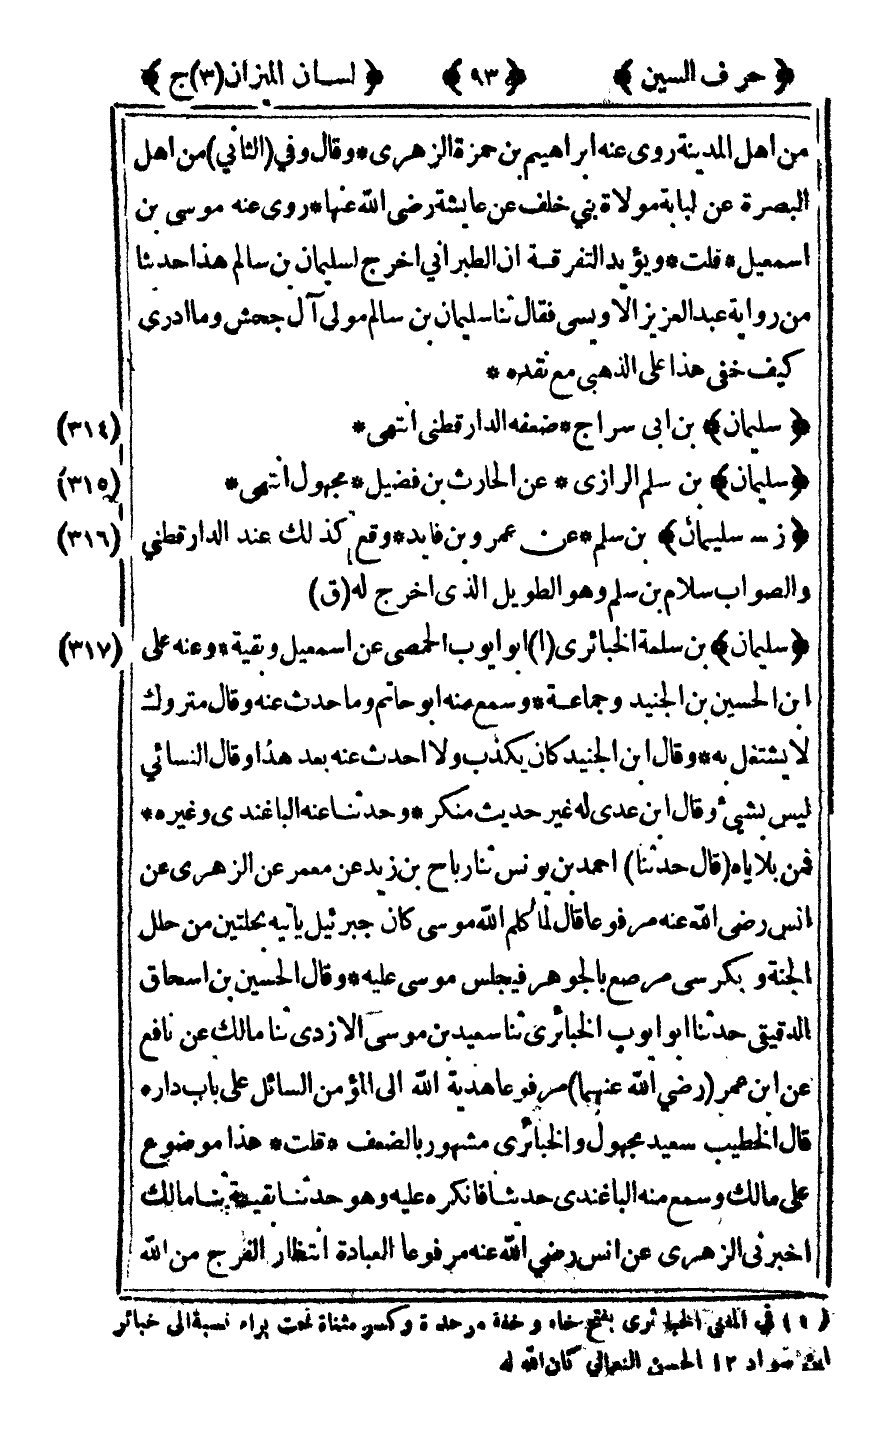 ﴿ حرف السين ﴾ ﴿ ٩٣ ﴾ ﴿ لسان الميزان (٣) ج ﴾
من اهل المدينة روى عنه ابراهيم بن حمزة الزهرى * وقال وفي (الثاني) من اهل
البصرة عن لبابة مولاة بني خلف عن عايشة رضى الله عنها * روى عنه موسى بن
اسمعيل * قلت * ويؤيد التفرقة ان الطبراني اخرج لسليمان بن سالم هذا حديثا
من رواية عبد العزيز الاويسى فقال ثنا سليمان بن سالم مولى آل جحش وما ادرى
كيف خفى هذا على الذهبي مع نقده *
﴿ سليمان ﴾ بن ابى سراج * ضعفه الدارقطنى انتهى * (٣١٤)
﴿ سليمان ﴾ بن سلم الرازى * عن الحارث بن فضيل * مجهول انتهى * (٣١٥)
﴿ ز ـ سليمان ﴾ بن سلم * عن عمرو بن فايد * وقع كذلك عند الدارقطني (٣١٦)
والصواب سلام بن سلم وهو الطويل الذى اخرج له (ق)
﴿ سليمان ﴾ بن سلمة الخبائرى (١) ابو ايوب الحمصى عن اسمعيل وبقية * وعنه على (٣١٧)
ابن الحسين بن الجنيد وجماعة * وسمع منه ابو حاتم وما حدث عنه وقال متروك
لا يشتغل به * وقال ابن الجنيد كان يكذب ولا احدث عنه بعد هذا وقال النسائي
ليس بشيئ وقال ابن عدى له غير حديث منكر * وحدثنا عنه الباغندى وغيره *
فمن بلاياه (قال حدثنا) احمد بن يونس ثنا رباح بن زيد عن معمر عن الزهرى عن
انس رضى الله عنه مرفوعا قال لما كلم الله موسى كان جبرئيل يأتيه بحلتين من حلل
الجنة وبكرسى مرصع بالجوهر فيجلس موسى عليه * وقال الحسين بن اسحاق
الدقيقى حدثنا ابو ايوب الخبائرى ثنا سعيد بن موسى الازدى ثنا مالك عن نافع
عن ابن عمر (رضي الله عنهما) مرفوعا هدية الله الى المؤمن السائل على باب داره
قال الخطيب سعيد مجهول والخبائرى مشهور بالضعف * قلت * هذا موضوع
على مالك وسمع منه الباغندى حديثا فانكره عليه وهو حدثنا بقية ثنا مالك
اخبرنى الزهرى عن انس رضي الله عنه مرفوعا العبادة انتظار الفرج من الله
(١) في المغني الخبائرى بفتح خاء وخفة موحدة وكسر مثناة تحت براء نسبة الى خبائر
ابن سواد ١٢ الحسن النعماني كان الله له